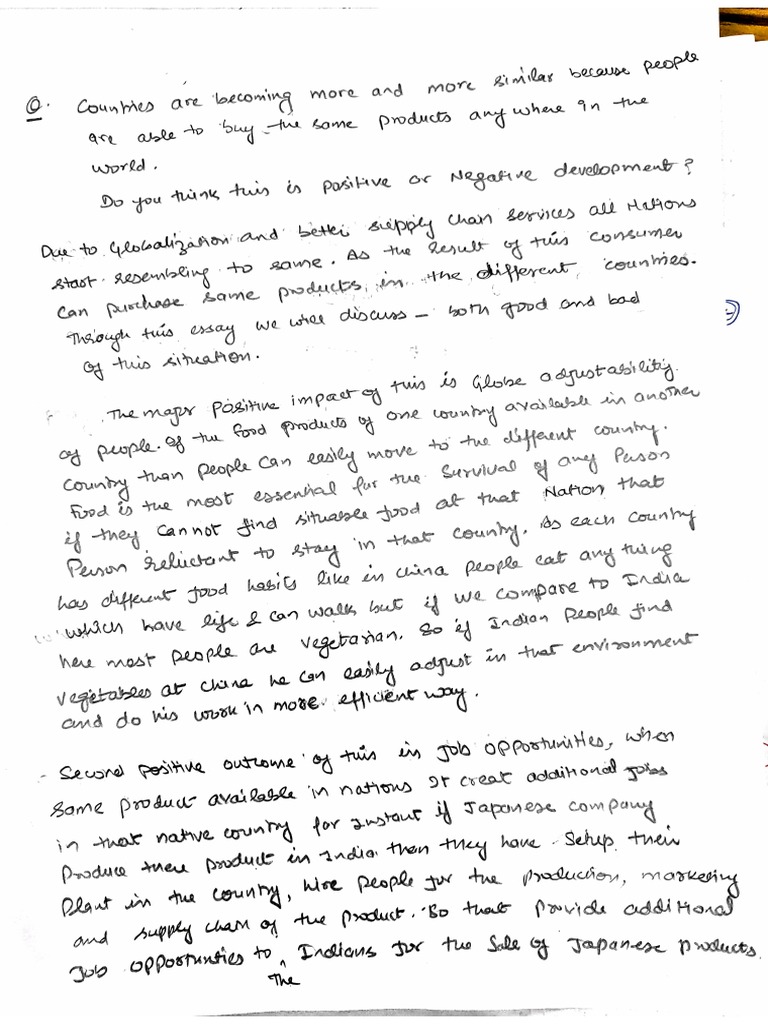 Q. Countries are becoming more and more similar because people
are able to buy the same products any where in the
world.
Do you think this is positive or Negative development?
Due to Globalization and better supply chain services all Nations
start resembling to same. As the result of this consumer
can purchase same products in the different countries.
Through this essay we will discuss – both good and bad
of this situation.
The major positive impact of this is Globe adjustability
of people. If the food products of one country available in another
country than people can easily move to the different country.
Food is the most essential for the survival of any Person
if they cannot find situable food at that Nation that
Person reluctant to stay in that country. As each country
has different food habits like in china people eat any thing
which have life & can walk but if we compare to India
here most people are vegetarian. So if Indian People find
vegetables at china he can easily adjust in that environment
and do his work in more efficient way.
- Second positive outcome of this in Job opportunities, when
same product available in nations It creat additional jobs
in that native country for instant if Japanese company
Produce there product in India then they have Setup their
Plant in the country, hire people for the production, marketing
and supply chain of the product. So that Provide additional
Job opportunities to ^ Indians for the Sale of Japanese products.
The